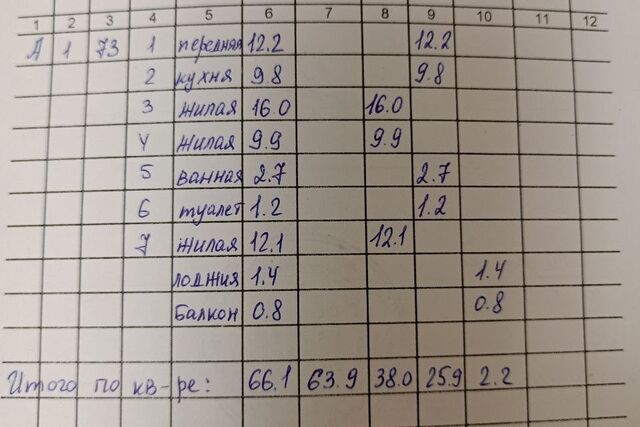 1 2 3 4 5 6 7 8 9 10 11 12
А 1 73 1 передняя 12.2 12.2
2 кухня 9.8 9.8
3 жилая 16.0 16.0
4 жилая 9.9 9.9
5 ванная 2.7 2.7
6 туалет 1.2 1.2
7 жилая 12.1 12.1
лоджия 1.4 1.4
балкон 0.8 0.8
Итого по кв-ре: 66.1 63.9 38.0 25.9 2.2